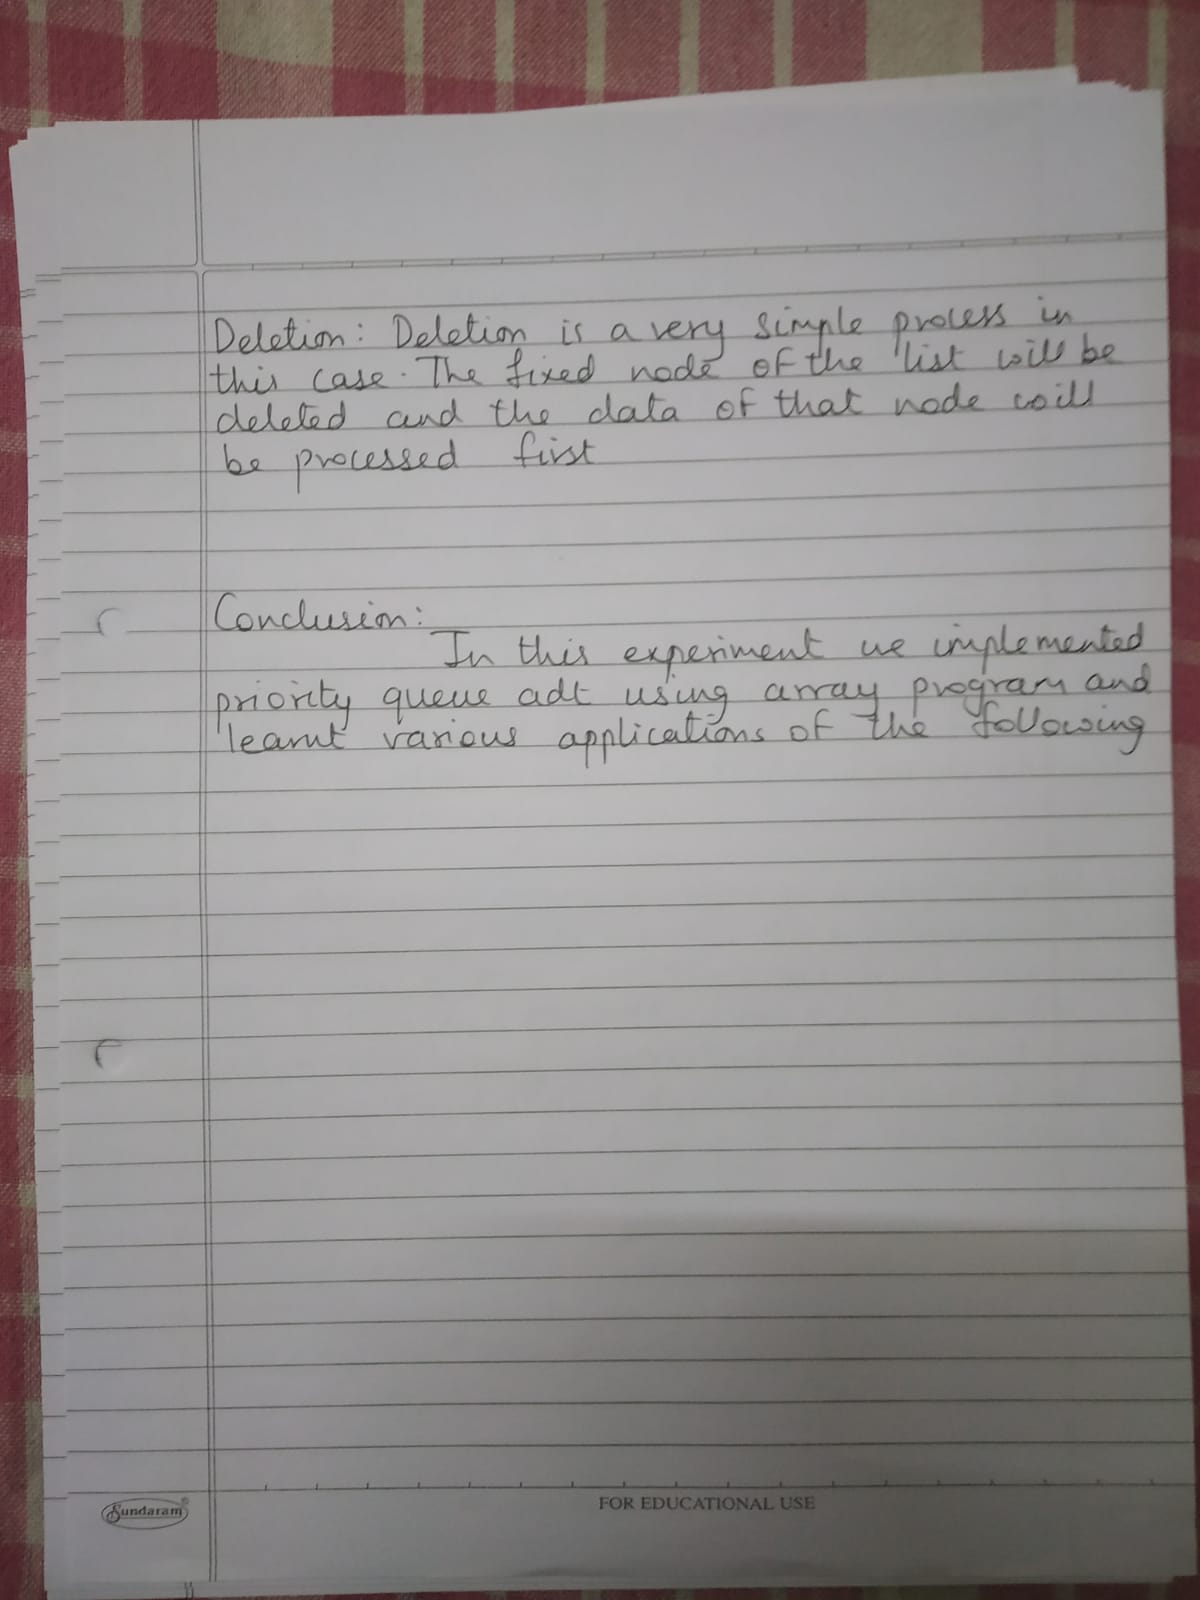 Deletion: Deletion is a very simple process in
this case. The fixed node of the list will be
deleted and the data of that node will
be processed first
Conclusion:
In this experiment we implemented
priority queue adt using array program and
learnt various applications of the following
Sundaram
FOR EDUCATIONAL USE